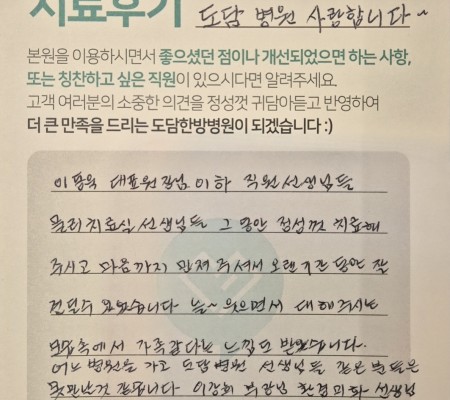 치료후기 도담 병원 사랑합니다~
본원을 이용하시면서 좋으셨던 점이나 개선되었으면 하는 사항,
또는 칭찬하고 싶은 직원이 있으시다면 알려주세요.
고객 여러분의 소중한 의견을 정성껏 귀담아듣고 반영하여
더 큰 만족을 드리는 도담한방병원이 되겠습니다 :)
대표원장님 이하 직원선생님들
물리치료실 선생님들 그동안 정성껏 치료해
주시고 마음까지 만져 주셔서 오랜기간 동안 잘
견딜수 있었습니다 늘~ 웃으면서 대해주시는
모습속에서 가족같다는 느낌도 받았습니다.
어느 병원을 가고 도담병원 선생님들 같은 분들은
못만난것 같습니다 이강희 부장님 선생님